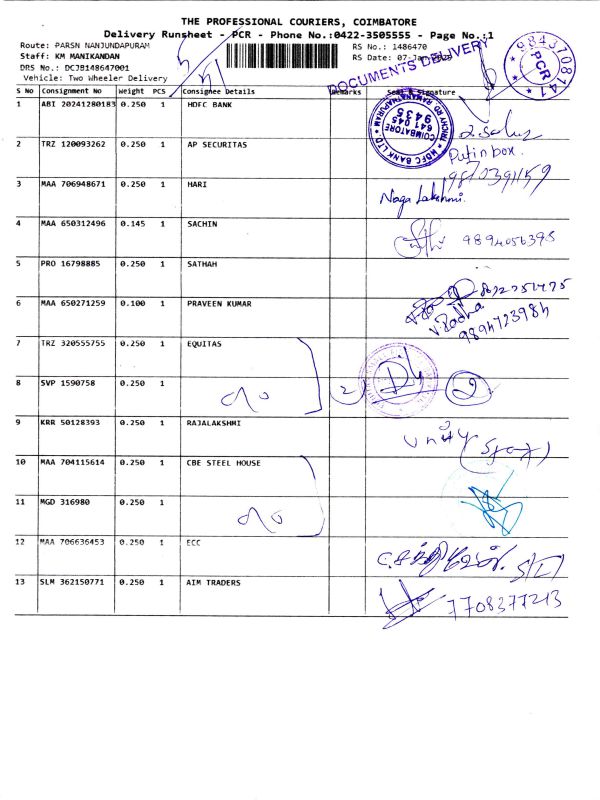 THE PROFESSIONAL COURIERS, COIMBATORE
Delivery Runsheet - PCR - Phone No.:0422-3505555 - Page No.:1
Route: PARSN NANJUNDAPURAM
RS No.: 1486470
Staff: KM MANIKANDAN
RS Date: 07-Jan-
DRS No.: DCJB148647001
Vehicle: Two Wheeler Delivery
DOCUMENTS DELIVERY
9843708141
PCR
S No Consignment No Weight PCS Consignee Details Remarks Seal & Signature
1 ABI 20241280183 0.250 1 HDFC BANK
HDFC BANK LTD. TRICHY RD RAMANATHAPURAM
COIMBATORE
641 045
9435
2 TRZ 120093262 0.250 1 AP SECURITAS
Put in box.
3 MAA 706948671 0.250 1 HARI
Naga Lakshmi.
4 MAA 650312496 0.145 1 SACHIN
9894056398
5 PRO 16798885 0.250 1 SATHAH
6 MAA 650271259 0.100 1 PRAVEEN KUMAR
V. Radha
7 TRZ 320555755 0.250 1 EQUITAS
8 SVP 1590758 0.250 1
2
2
9 KRR 50128393 0.250 1 RAJALAKSHMI
10 MAA 704115614 0.250 1 CBE STEEL HOUSE
11 MGD 316980 0.250 1
12 MAA 706636453 0.250 1 ECC
13 SLM 362150771 0.250 1 AIM TRADERS
7708377213